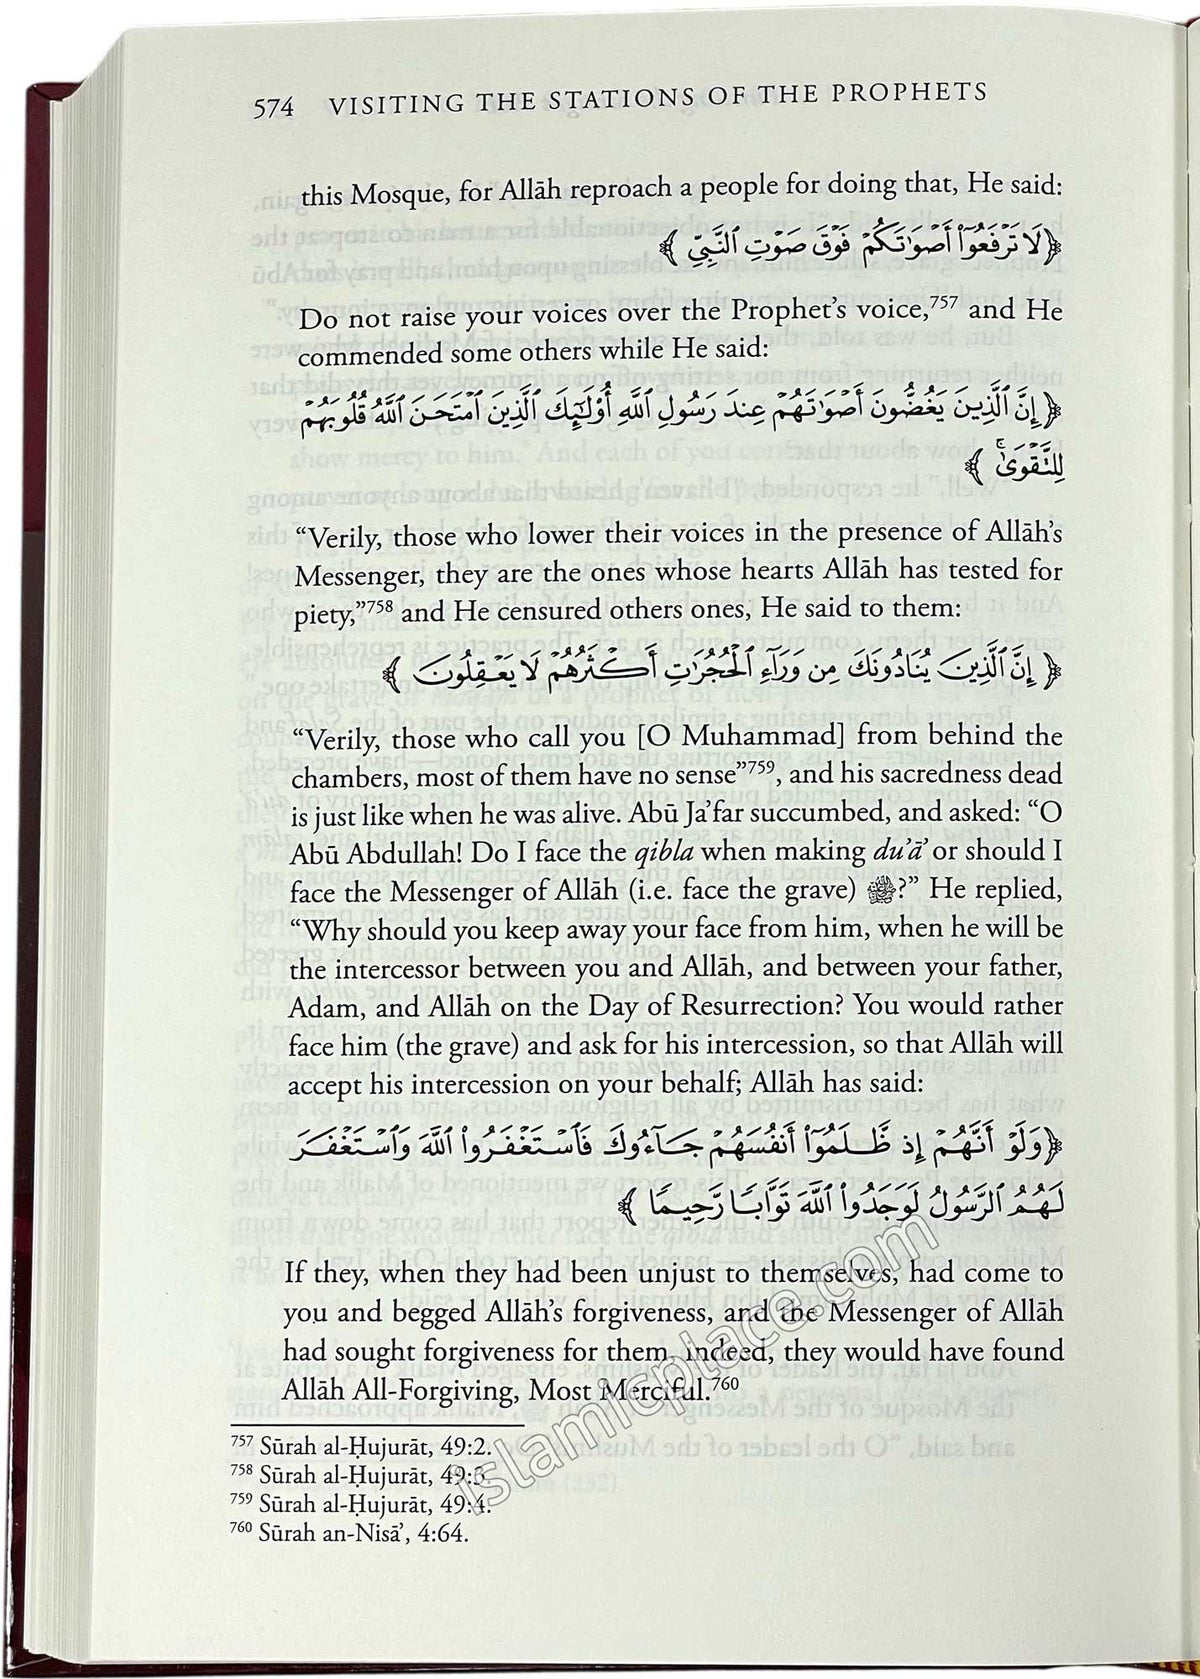 574 VISITING THE STATIONS OF THE PROPHETS
this Mosque, for Allāh reproach a people for doing that, He said:
﴿لَا تَرْفَعُوٓا۟ أَصْوَٰتَكُمْ فَوْقَ صَوْتِ ٱلنَّبِىِّ ﴾
Do not raise your voices over the Prophet's voice,⁷⁵⁷ and He
commended some others while He said:
﴿إِنَّ ٱلَّذِينَ يَغُضُّونَ أَصْوَٰتَهُمْ عِندَ رَسُولِ ٱللَّهِ أُو۟لَـٰٓئِكَ ٱلَّذِينَ ٱمْتَحَنَ ٱللَّهُ قُلُوبَهُمْ
لِلتَّقْوَىٰ ۚ ﴾
“Verily, those who lower their voices in the presence of Allāh's
Messenger, they are the ones whose hearts Allāh has tested for
piety,”⁷⁵⁸ and He censured others ones, He said to them:
﴿ إِنَّ ٱلَّذِينَ يُنَادُونَكَ مِن وَرَآءِ ٱلْحُجُرَٰتِ أَكْثَرُهُمْ لَا يَعْقِلُونَ ﴾
“Verily, those who call you [O Muhammad] from behind the
chambers, most of them have no sense”⁷⁵⁹, and his sacredness dead
is just like when he was alive. Abū Ja'far succumbed, and asked: “O
Abū Abdullah! Do I face the qibla when making du'ā' or should I
face the Messenger of Allāh (i.e. face the grave) ﷺ?” He replied,
“Why should you keep away your face from him, when he will be
the intercessor between you and Allāh, and between your father,
Adam, and Allāh on the Day of Resurrection? You would rather
face him (the grave) and ask for his intercession, so that Allāh will
accept his intercession on your behalf; Allāh has said:
﴿وَلَوْ أَنَّهُمْ إِذ ظَّلَمُوٓا۟ أَنفُسَهُمْ جَآءُوكَ فَٱسْتَغْفَرُوا۟ ٱللَّهَ وَٱسْتَغْفَرَ
لَهُمُ ٱلرَّسُولُ لَوَجَدُوا۟ ٱللَّهَ تَوَّابًا رَّحِيمًا ﴾
If they, when they had been unjust to themselves, had come to
you and begged Allāh's forgiveness, and the Messenger of Allāh
had sought forgiveness for them, indeed, they would have found
Allāh All-Forgiving, Most Merciful.⁷⁶⁰
⁷⁵⁷ Sūrah al-Ḥujurāt, 49:2.
⁷⁵⁸ Sūrah al-Ḥujurāt, 49:3.
⁷⁵⁹ Sūrah al-Ḥujurāt, 49:4.
⁷⁶⁰ Sūrah an-Nisā', 4:64.
islamicplace.com